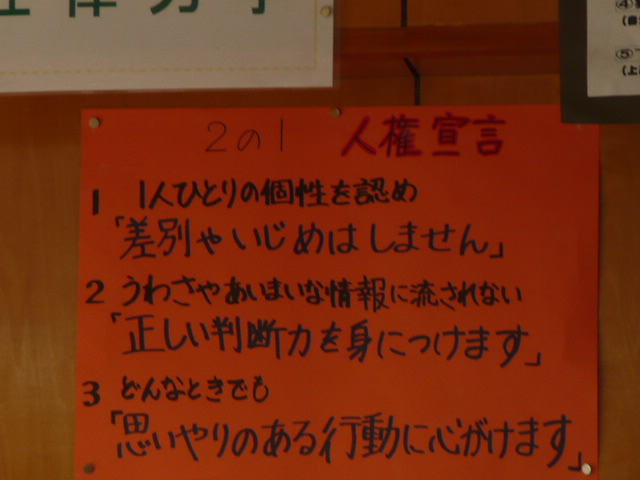 2の1 人権宣言
1 1人ひとりの個性を認め
「差別やいじめはしません」
2 うわさやあいまいな情報に流されない
「正しい判断力を身につけます」
3 どんなときでも
「思いやりのある行動に心がけます」